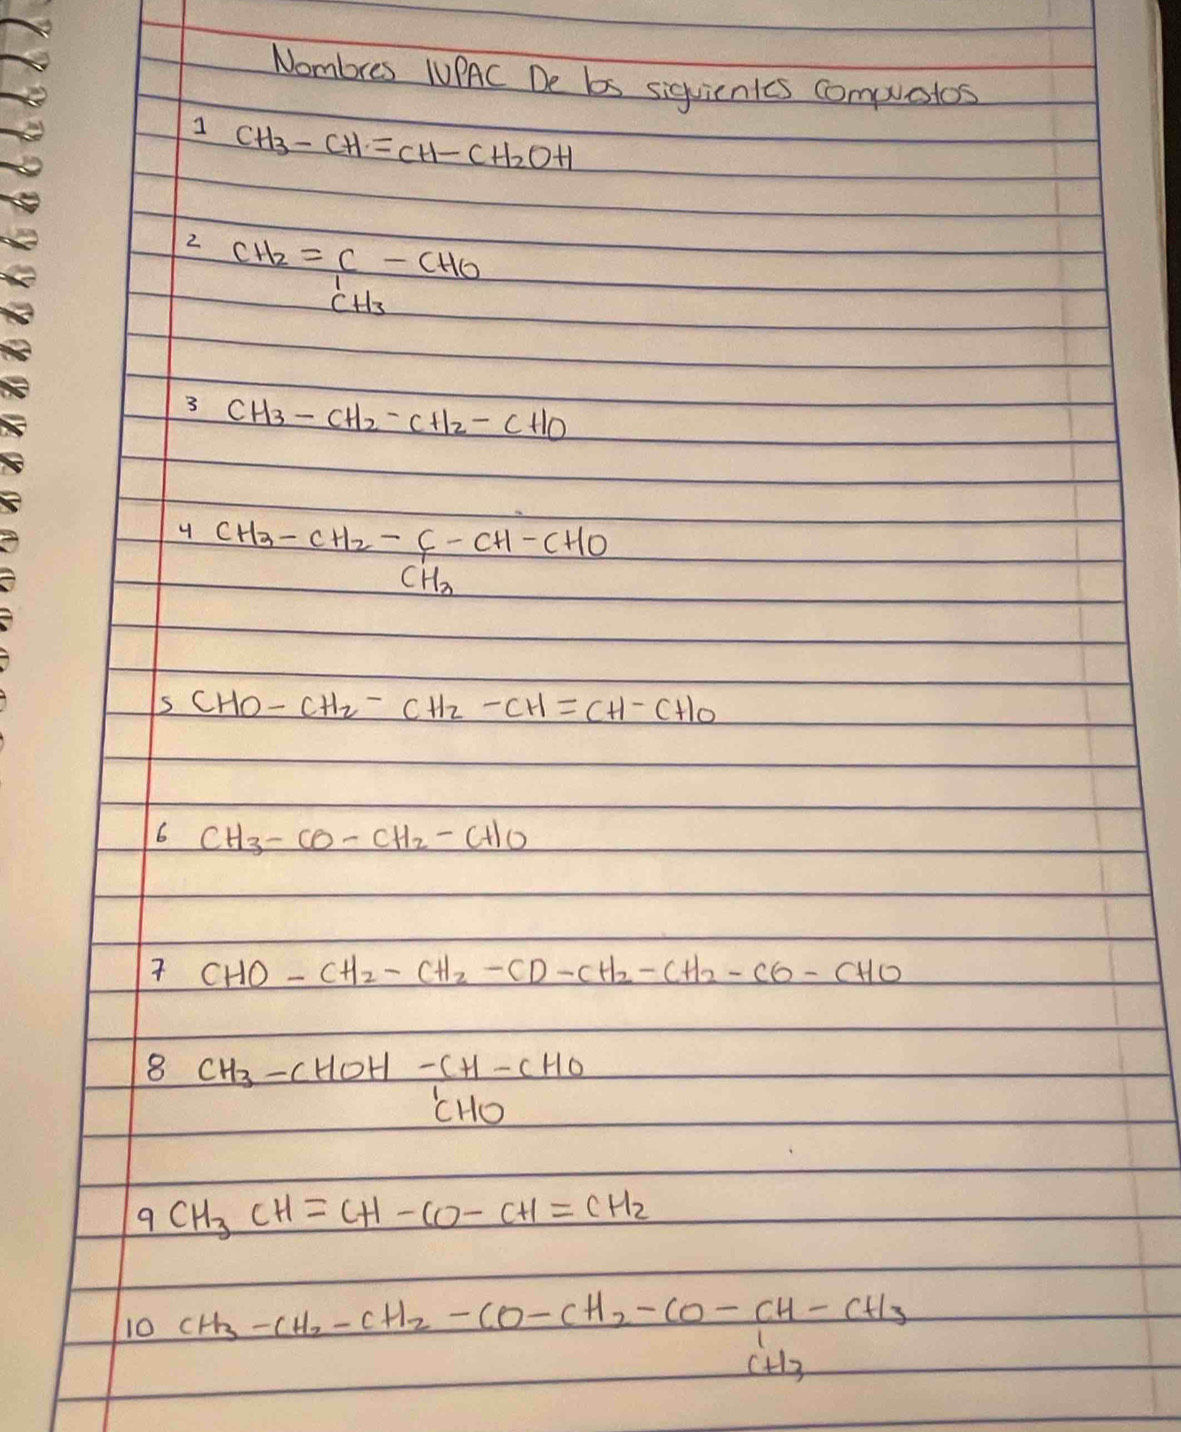 Nombres IUPAC De los siguientes compuestos
1 CH3 - CH = CH - CH2OH
2 CH2 = C - CHO
CH3
3 CH3 - CH2 - CH2 - CHO
4 CH3 - CH2 - C - CH - CHO
CH3
5 CHO - CH2 - CH2 - CH = CH - CHO
6 CH3 - CO - CH2 - CHO
7 CHO - CH2 - CH2 - CO - CH2 - CH2 - CO - CHO
8 CH3 - CHOH - CH - CHO
CHO
9 CH3 CH = CH - CO - CH = CH2
10 CH3 - CH2 - CH2 - CO - CH2 - CO - CH - CH3
CH3